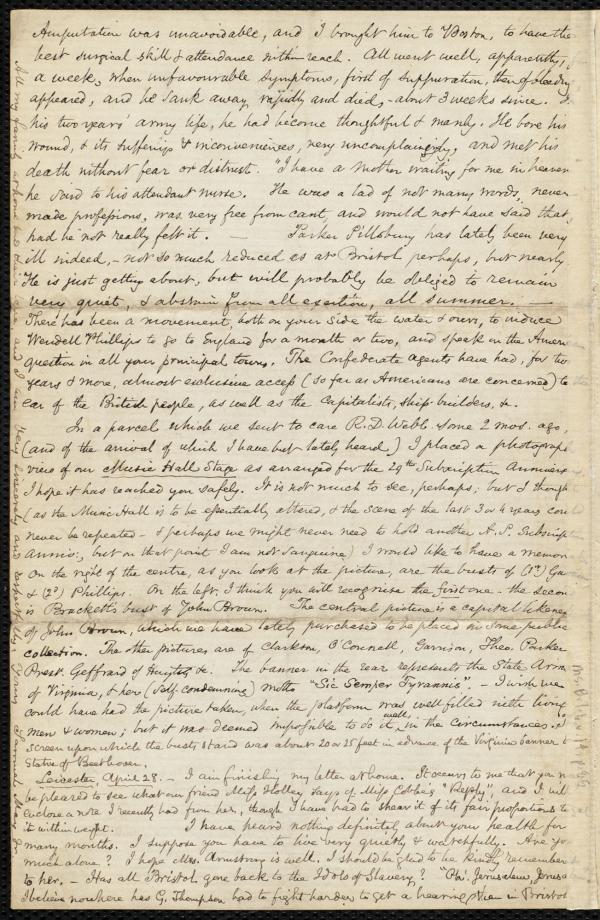 Amputation was unavoidable, and I brought him to Boston, to have the
best surgical skill & attendance within reach. All went well, apparently,
a week, when unfavourable symptoms, first of suppuration, then of bleeding
appeared, and he sank away rapidly and died, - about 3 weeks since.
his two years' army life, he had become thoughtful & manly. He bore his
wound, & its sufferings & inconveniences, very uncomplainingly, and met his
death without fear or distrust. "I have a Mother waiting for me in heaven
he said to his attendant nurse. He was a lad of not many words, never
made professions, was very free from cant, and would not have said that,
had he not really felt it. — Parker Pillsbury has lately been very
ill indeed, - not so much reduced as at Bristol perhaps, but nearly
He is just getting about, but will probably be obliged to remain
very quiet, & abstain from all exertion, all summer. —
There has been a movement, both on your side the water & ours, to induce
Wendell Phillips to go to England for a month or two, and speak on the Amern
question in all your principal towns. The Confederate agents have had, for two
years & more, almost exclusive access (so far as Americans are concerned) to
ear of the British people, as well as the Capitalists, ship builders, &c.
In a parcel which we sent to care R. D. Webb some 2 mos. ago,
(and of the arrival of which I have but lately heard) I placed a photograph
view of our Music Hall Stage as arranged for the 29th Subscription Annivers
I hope it has reached you safely. It is not much to see, perhaps; but I though
(as the Music Hall is to be essentially altered, & the scene of the last 3 or 4 years cou
never be repeated - & perhaps we might never need to hold another A. S. Subscrip
Annis:, but on that point I am not sanguine) I would like to have a memor
On the right of the centre, as you look at the picture, are the busts of (1st) Ga
& (2d) Phillips. On the left, I think you will recognise the first one - the secon
is Brackett's bust of John Brown. The central picture is a capital likenes
of John Brown, which we have lately purchased to be placed in some public
collection. The other pictures are of Clarkson, O'Connell, Garrison, Theo. Parker
Prest. Geffrard of Hayti &c. The banner in the rear represents the State Arms
of Virginia, & her (self-condemning) motto "Sic Semper Tyrannis". - I wish we
could have had the picture taken, when the platform was well filled with living
men & women; but it was deemed impossible to do it well, in the circumstances.
screen upon which the busts stand was about 20 or 25 feet in advance of the Virginia banner &
Statue of Beethoven.
Leicester, April 28. - I am finishing my letter at home. It occurs to me that you m
be pleased to see what our friend Miss Holley says of Miss Cobbe's "Reply", and I will
enclose a note I recently had from her, though I have had to shear it of its fair proportions to
it within weight. I have heard nothing definitely about your health for
many months. I suppose you have to live very quietly & watchfully. Are yo
much alone? I hope Mrs. Armstrong is well. I should be glad to be kindly remember
to her. - Has all Bristol gone back to the Idols of Slavery? "Oh! Jerusalem, Jerusa
I believe nowhere has G. Thompson had to fight harder to get a hearing than in Bristol
All my family
and I am very sincerely and respectfully, Yours Samuel May Jr.